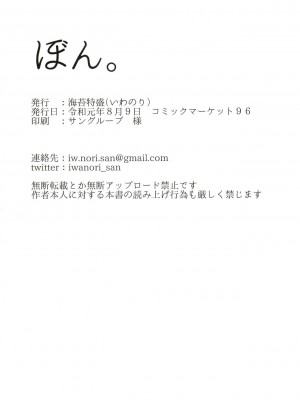 ぼん。
発行　：海苔特盛(いわのり)
発行日：令和元年８月９日　コミックマーケット９６
印刷　：サングループ　様
連絡先：iw.nori.san@gmail.com
twitter：iwanori_san
無断転載とか無断アップロード禁止です
作者本人に対する本書の読み上げ行為も厳しく禁じます